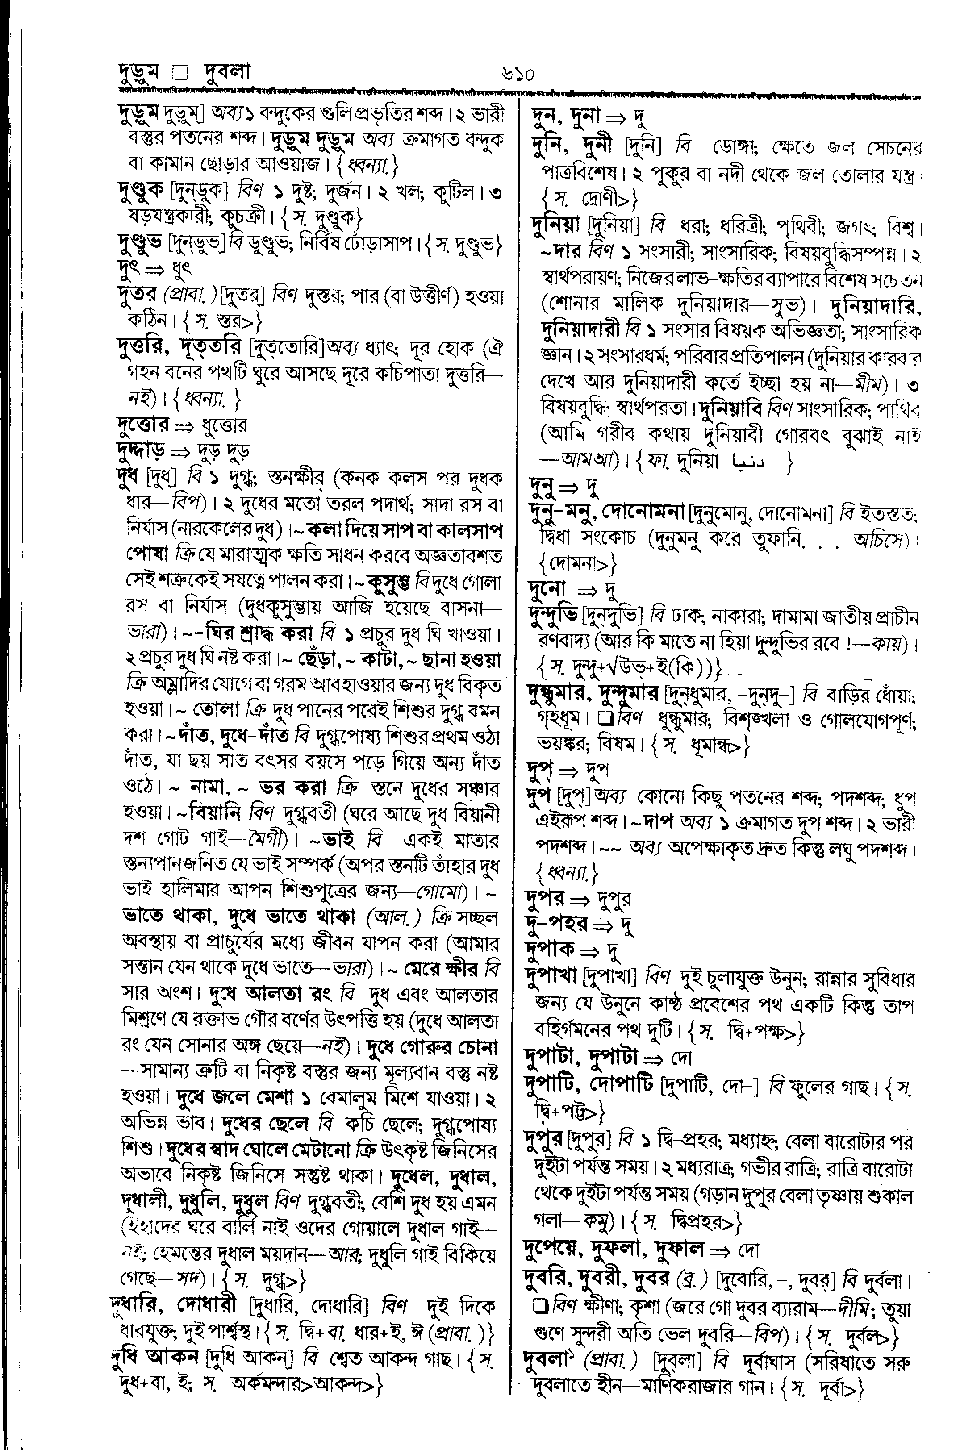 দুড়ুম □ দুবলা
৬১০
দুড়ুম দুড়ুম্] অব্য ১ বন্দুকের গুলি প্রভৃতির শব্দ। ২ ভারী
বস্তুর পতনের শব্দ। দুড়ুম দুড়ুম অব্য ক্রমাগত বন্দুক
বা কামান ছোড়ার আওয়াজ। {ধ্বন্যা.}
দুণ্ডুক [দুন্‌ডুক] বিণ ১ দুষ্ট; দুর্জন। ২ খল; কুটিল। ৩
ষড়যন্ত্রকারী; কুচক্রী। {স. দুণ্ডুক}
দুণ্ডুভ [দুন্‌ডুভ] বি ডুণ্ডুভ; নির্বিষ ঢোড়াসাপ। {স. দুণ্ডুভ}
দুৎ ⇒ ধুৎ
দুতর (প্রাবা.) [দুতর্] বিণ দুস্তর; পার (বা উত্তীর্ণ) হওয়া
কঠিন। {স. স্তর>}
দুত্তরি, দূত্তরি [দুত্‌তোরি] অব্য ধ্যাৎ; দূর হোক (ঐ
গহন বনের পথটি ঘুরে আসছে দূরে কচিপাতা দুত্তরি—
নই)। {ধ্বন্যা. }
দুত্তোর ⇒ ধুত্তোর
দুদ্দাড় ⇒ দুড় দুড়
দুধ [দুধ্] বি ১ দুগ্ধ; স্তনক্ষীর (কনক কলস পর দুধক
ধার—বিপ)। ২ দুধের মতো তরল পদার্থ; সাদা রস বা
নির্যাস (নারকেলের দুধ)। ~ কলা দিয়ে সাপ বা কালসাপ
পোষা ক্রি যে মারাত্মক ক্ষতি সাধন করবে অজ্ঞতাবশত
সেই শত্রুকেই সযত্নে পালন করা। ~ কুসুম্ভ বি দুধে গোলা
রস বা নির্যাস (দুধকুসুম্ভায় আজি হয়েছে বাসনা—
ভারা)। ~-ঘির শ্রাদ্ধ করা বি ১ প্রচুর দুধ ঘি খাওয়া।
২ প্রচুর দুধ ঘি নষ্ট করা। ~ ছেঁড়া, ~ কাটা, ~ ছানা হওয়া
ক্রি অম্লাদির যোগে বা গরম আবহাওয়ার জন্য দুধ বিকৃত
হওয়া। ~ তোলা ক্রি দুধ পানের পরেই শিশুর দুগ্ধ বমন
করা। ~দাঁত, দুধে-দাঁত বি দুগ্ধপোষ্য শিশুর প্রথম ওঠা
দাঁত, যা ছয় সাত বৎসর বয়সে পড়ে গিয়ে অন্য দাঁত
ওঠে। ~ নামা, ~ ভর করা ক্রি স্তনে দুধের সঞ্চার
হওয়া। ~বিয়ানি বিণ দুগ্ধবতী (ঘরে আছে দুধ বিয়ানী
দশ গোট গাই—মৈগী)। ~ভাই বি একই মাতার
স্তন্যপানজনিত যে ভাই সম্পর্ক (অপর স্তনটি তাঁহার দুধ
ভাই হালিমার আপন শিশুপুত্রের জন্য—গোমো)। ~
ভাতে থাকা, দুধে ভাতে থাকা (আল.) ক্রি সচ্ছল
অবস্থায় বা প্রাচুর্যের মধ্যে জীবন যাপন করা (আমার
সন্তান যেন থাকে দুধে ভাতে—ভারা)। ~ মেরে ক্ষীর বি
সার অংশ। দুধে আলতা রং বি দুধ এবং আলতার
মিশ্রণে যে রক্তাভ গৌর বর্ণের উৎপত্তি হয় (দুধে আলতা
রং যেন সোনার অঙ্গ ছেয়ে—নই)। দুধে গোরুর চোনা
— সামান্য ত্রুটি বা নিকৃষ্ট বস্তুর জন্য মূল্যবান বস্তু নষ্ট
হওয়া। দুধে জলে মেশা ১ বেমালুম মিশে যাওয়া। ২
অভিন্ন ভাব। দুধের ছেলে বি কচি ছেলে; দুগ্ধপোষ্য
শিশু। দুধের স্বাদ ঘোলে মেটানো ক্রি উৎকৃষ্ট জিনিসের
অভাবে নিকৃষ্ট জিনিসে সন্তুষ্ট থাকা। দুধেল, দুধাল,
দুধালী, দুধুলি, দুধুল বিণ দুগ্ধবতী; বেশি দুধ হয় এমন
(ইহাদের ঘরে বার্লি নাই ওদের গোয়ালে দুধাল গাই—
নই; হেমন্তের দুধাল ময়দান—আর; দুধুলি গাই বিকিয়ে
গেছে—সদ)। {স. দুগ্ধ>}
দুধারি, দোধারী [দুধারি, দোধারি] বিণ দুই দিকে
ধারযুক্ত; দুই পার্শ্বস্থ। {স. দ্বি+বা. ধার+ই, ঈ (প্রাবা.)}
দুধি আকন [দুধি আকন্] বি শ্বেত আকন্দ গাছ। {স.
দুধ+বা, ই; স. অর্কমন্দার>আকন্দ>}
দুন, দুনা ⇒ দু
দুনি, দুনী [দুনি] বি ডোঙ্গা; ক্ষেতে জল সেচনের
পাত্রবিশেষ। ২ পুকুর বা নদী থেকে জল তোলার যন্ত্র।
{স. দ্রোণী>}
দুনিয়া [দুনিয়া] বি ধরা; ধরিত্রী; পৃথিবী; জগৎ; বিশ্ব।
~দার বিণ ১ সংসারী; সাংসারিক; বিষয়বুদ্ধিসম্পন্ন। ২
স্বার্থপরায়ণ; নিজের লাভ-ক্ষতির ব্যাপারে বিশেষ সচেতন
(শোনার মালিক দুনিয়াদার—সুভ)। দুনিয়াদারি,
দুনিয়াদারী বি ১ সংসার বিষয়ক অভিজ্ঞতা; সাংসারিক
জ্ঞান। ২ সংসারধর্ম; পরিবার প্রতিপালন (দুনিয়ার কারবার
দেখে আর দুনিয়াদারী কর্তে ইচ্ছা হয় না—মীম)। ৩
বিষয়বুদ্ধি; স্বার্থপরতা। দুনিয়াবি বিণ সাংসারিক; পার্থিব
(আমি গরীব কথায় দুনিয়াবী গোরবৎ বুঝাই নাই
—আমআ)। {ফা. দুনিয়া دنیا }
দুনু ⇒ দু
দুনু-মনু, দোনোমনা [দুনুমোনু, দোনোমনা] বি ইতস্তত;
দ্বিধা সংকোচ (দুনুমনু করে তুফানি. . . অচিসে)।
{দোমনা>}
দুনো ⇒ দু
দুন্দুভি [দুন্‌দুভি] বি ঢাক; নাকারা; দামামা জাতীয় প্রাচীন
রণবাদ্য (আর কি মাতে না হিয়া দুন্দুভির রবে !—কায়)।
{স. দুন্দু+√উভ্+ই(কি))}
দুন্ধুমার, দুন্দুমার [দুন্‌ধুমার, -দুন্‌দু-] বি বাড়ির ধোঁয়া;
গৃহধূম। ❑ বিণ ধুন্ধুমার; বিশৃঙ্খলা ও গোলযোগপূর্ণ;
ভয়ঙ্কর; বিষম। {স. ধূমান্ধ>}
দুপ ⇒ দুপ
দুপ [দুপ্] অব্য কোনো কিছু পতনের শব্দ; পদশব্দ; ধুপ
এইরূপ শব্দ। ~দাপ অব্য ১ ক্রমাগত দুপ শব্দ। ২ ভারী
পদশব্দ। ~~ অব্য অপেক্ষাকৃত দ্রুত কিন্তু লঘু পদশব্দ।
{ধ্বন্যা.}
দুপর ⇒ দুপুর
দু-পহর ⇒ দু
দুপাক ⇒ দু
দুপাখা [দুপাখা] বিণ দুই চূলাযুক্ত উনুন; রান্নার সুবিধার
জন্য যে উনুনে কাষ্ঠ প্রবেশের পথ একটি কিন্তু তাপ
বহির্গমনের পথ দুটি। {স. দ্বি+পক্ষ>}
দুপাটা, দুপাটা ⇒ দো
দুপাটি, দোপাটি [দুপাটি, দো-] বি ফুলের গাছ। {স.
দ্বি+পট্ট>}
দুপুর [দুপুর্] বি ১ দ্বি-প্রহর; মধ্যাহ্ন; বেলা বারোটার পর
দুইটা পর্যন্ত সময়। ২ মধ্যরাত্র; গভীর রাত্রি; রাত্রি বারোটা
থেকে দুইটা পর্যন্ত সময় (গড়ান দুপুর বেলা তৃষ্ণায় শুকাল
গলা—কমু)। {স. দ্বিপ্রহর>}
দুপেয়ে, দুফলা, দুফাল ⇒ দো
দুবরি, দুবরী, দুবর (ব্র.) [দুবোরি,-, দুবর্] বি দুর্বলা।
❑ বিণ ক্ষীণা; কৃশা (জরে গো দুবর ব্যারাম—দীমি; তুয়া
গুণে সুন্দরী অতি ভেল দুবরি—বিপ)। {স. দুর্বল>}
দুবলা¹ (প্রাবা.) [দুব্‌লা] বি দূর্বাঘাস (সরিষাতে সরু
দুবলাতে হীন—মাণিকরাজার গান। {স. দূর্বা>}